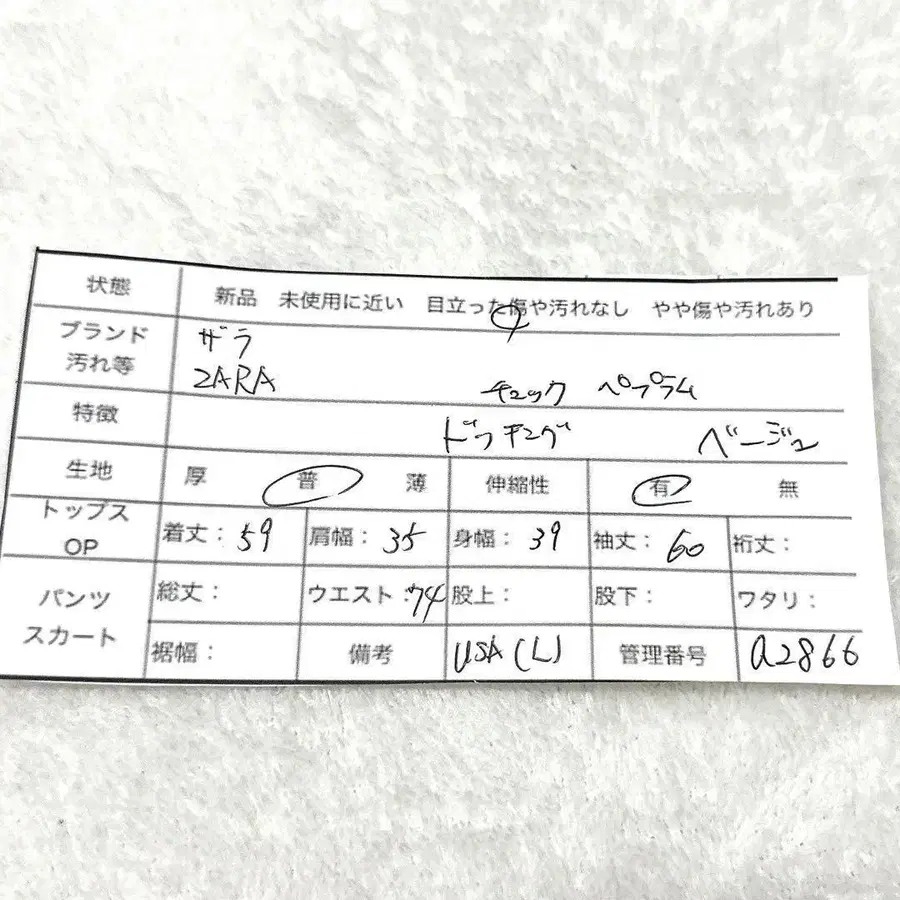 状態 新品 未使用に近い 目立った傷や汚れなし やや傷や汚れあり
ブランド ザラ
汚れ等 ZARA チェック ペプラム
特徴 ドッキング ベージュ
生地 厚 普 薄 伸縮性 有 無
トップス
OP 着丈: 59 肩幅: 35 身幅: 39 袖丈: 60 裄丈:
パンツ 総丈: ウエスト: 74 股上: 股下: ワタリ:
スカート 裾幅: 備考 USA(L) 管理番号 a2866